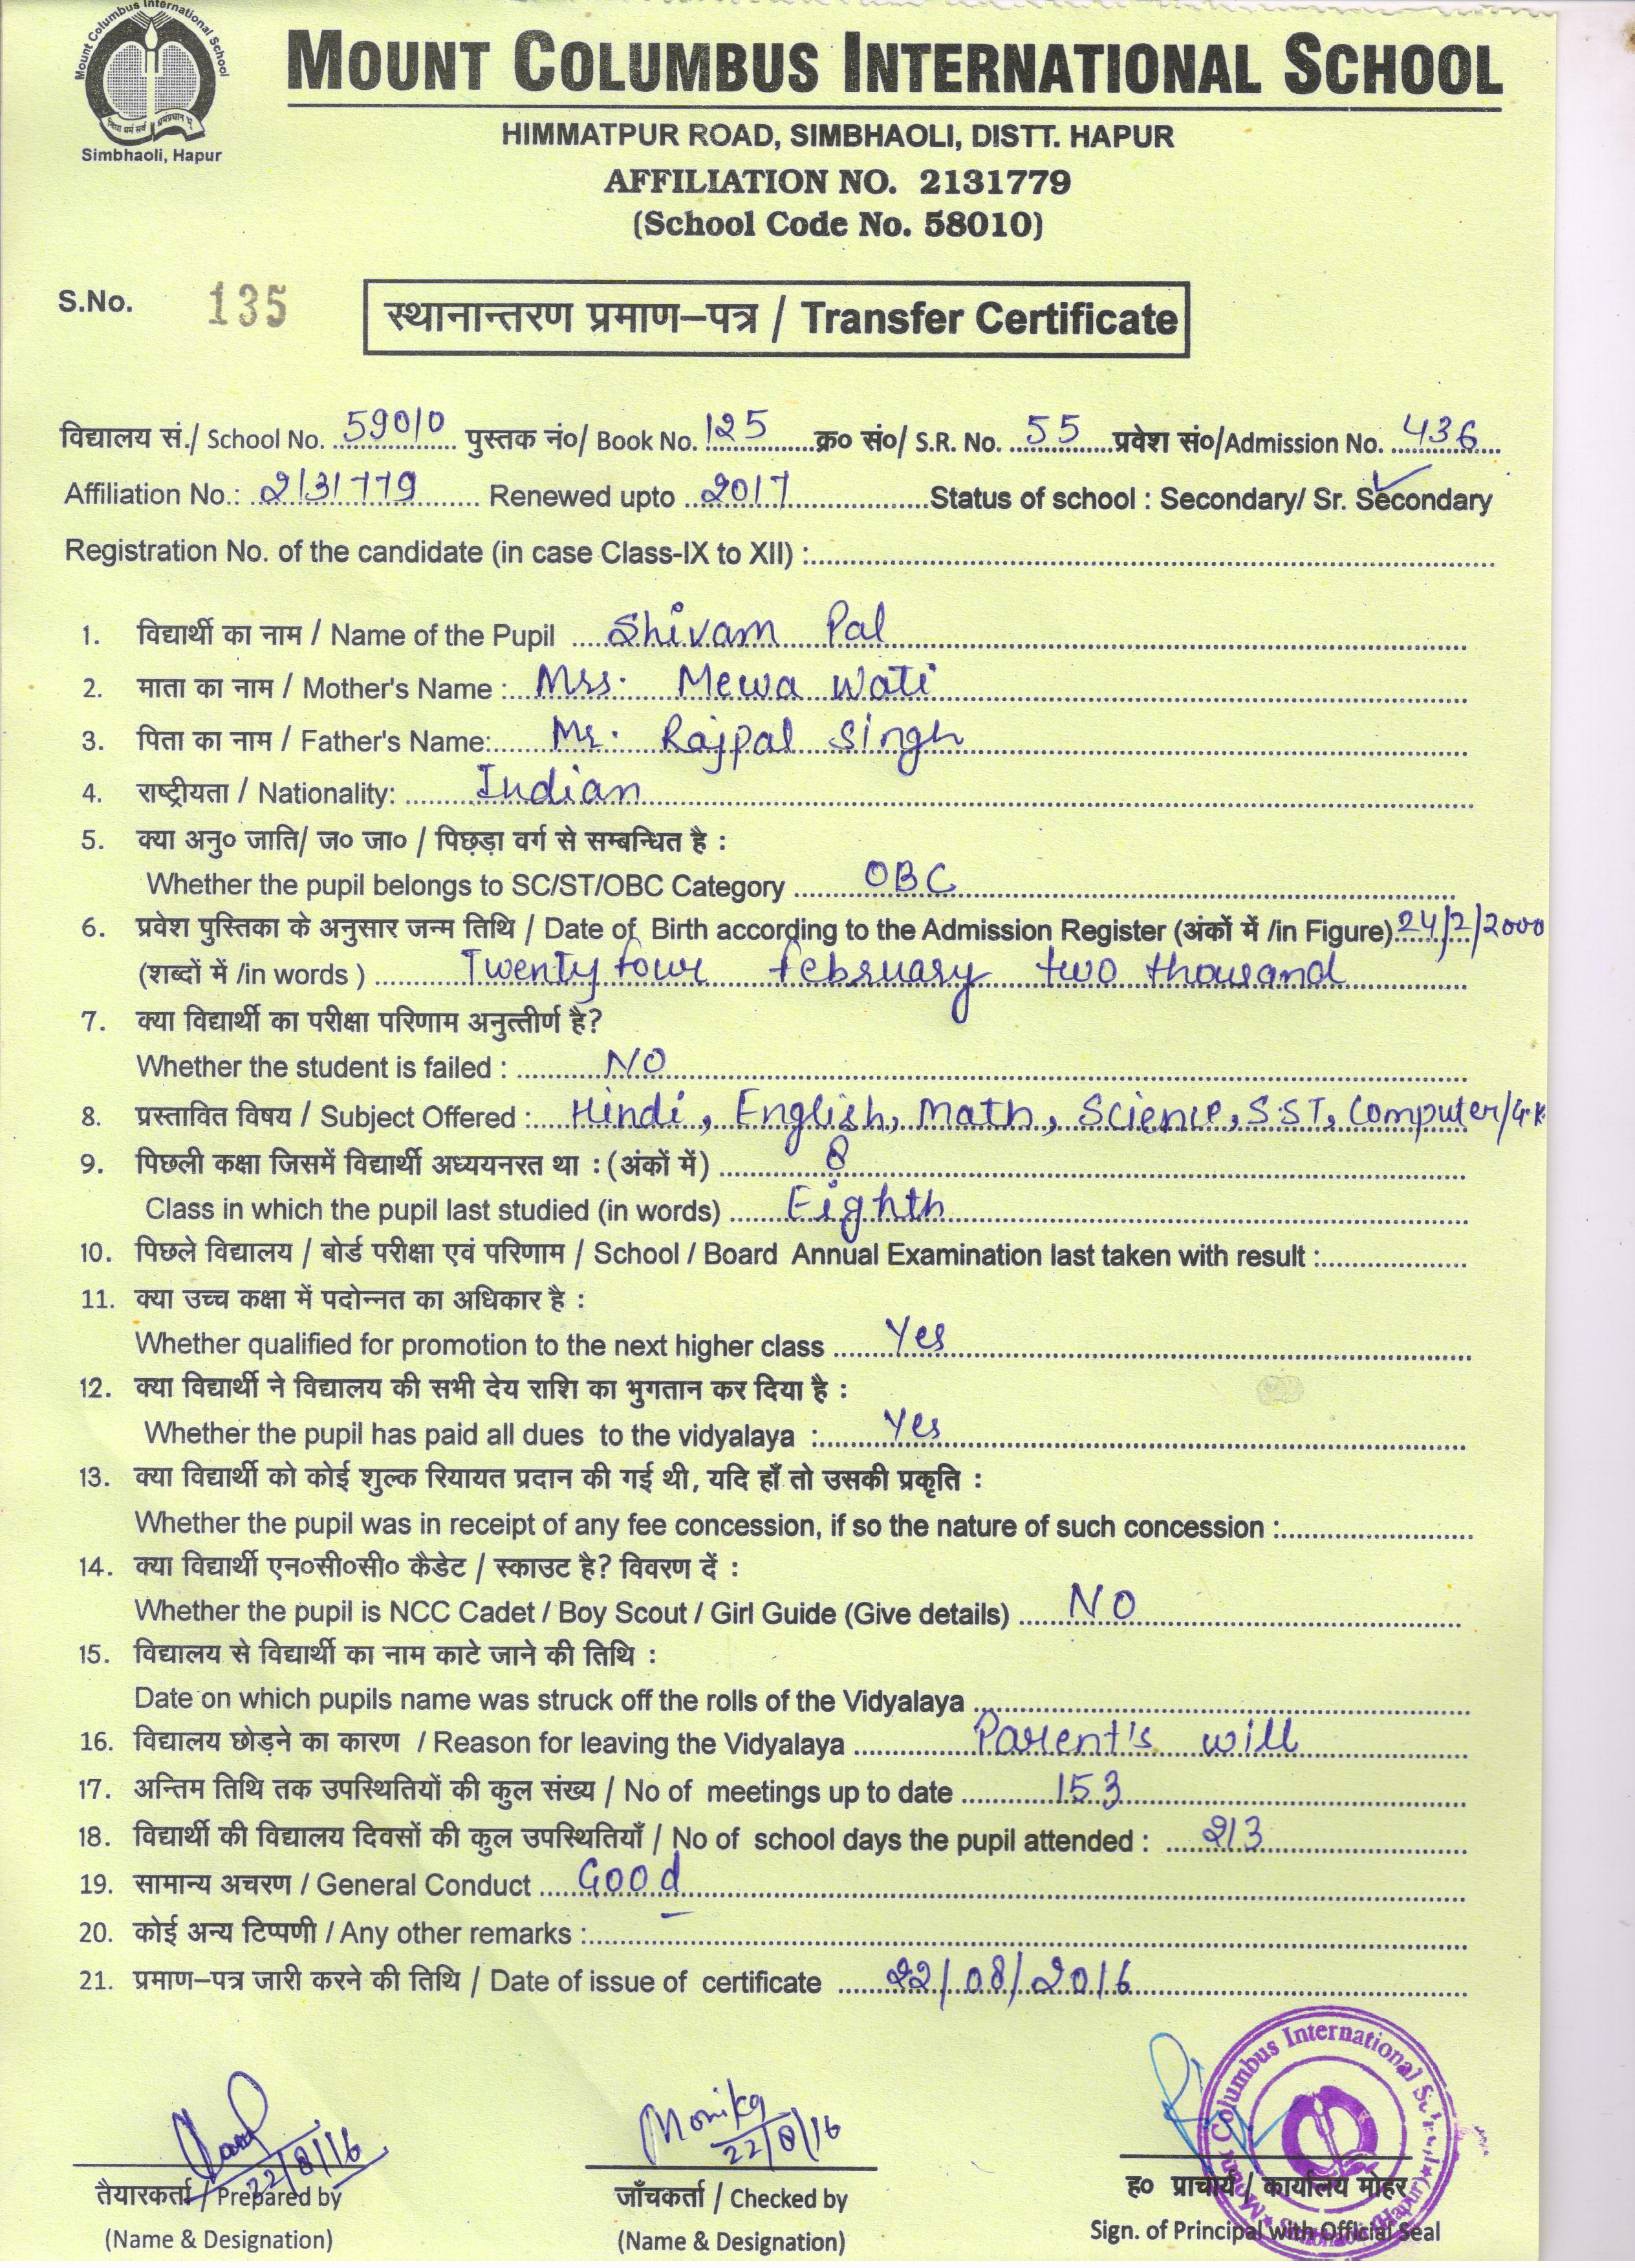 Mount Columbus International School
Simbhaoli, Hapur
MOUNT COLUMBUS INTERNATIONAL SCHOOL
HIMMATPUR ROAD, SIMBHAOLI, DISTT. HAPUR
AFFILIATION NO. 2131779
(School Code No. 58010)
S.No. 135
स्थानान्तरण प्रमाण–पत्र / Transfer Certificate
विद्यालय सं./ School No. 59010 पुस्तक नं०/ Book No. 125 क्र० सं०/ S.R. No. 55 प्रवेश सं०/Admission No. 436
Affiliation No.: 2131779 Renewed upto 2017 Status of school : Secondary/ Sr. Secondary
Registration No. of the candidate (in case Class-IX to XII) :
1. विद्यार्थी का नाम / Name of the Pupil Shivam Pal
2. माता का नाम / Mother's Name : Mrs. Mewa Wati
3. पिता का नाम / Father's Name: Mr. Rajpal Singh
4. राष्ट्रीयता / Nationality: Indian
5. क्या अनु० जाति/ ज० जा० / पिछड़ा वर्ग से सम्बन्धित है :
Whether the pupil belongs to SC/ST/OBC Category OBC
6. प्रवेश पुस्तिका के अनुसार जन्म तिथि / Date of Birth according to the Admission Register (अंकों में /in Figure) 24/2/2000
(शब्दों में /in words ) Twenty four february two thousand
7. क्या विद्यार्थी का परीक्षा परिणाम अनुत्तीर्ण है?
Whether the student is failed : NO
8. प्रस्तावित विषय / Subject Offered : Hindi, English, Math, Science, S.ST, Computer/G.K
9. पिछली कक्षा जिसमें विद्यार्थी अध्ययनरत था : (अंकों में) 8
Class in which the pupil last studied (in words) Eighth
10. पिछले विद्यालय / बोर्ड परीक्षा एवं परिणाम / School / Board Annual Examination last taken with result :
11. क्या उच्च कक्षा में पदोन्नत का अधिकार है :
Whether qualified for promotion to the next higher class Yes
12. क्या विद्यार्थी ने विद्यालय की सभी देय राशि का भुगतान कर दिया है :
Whether the pupil has paid all dues to the vidyalaya : Yes
13. क्या विद्यार्थी को कोई शुल्क रियायत प्रदान की गई थी, यदि हाँ तो उसकी प्रकृति :
Whether the pupil was in receipt of any fee concession, if so the nature of such concession :
14. क्या विद्यार्थी एन०सी०सी० कैडेट / स्काउट है? विवरण दें :
Whether the pupil is NCC Cadet / Boy Scout / Girl Guide (Give details) NO
15. विद्यालय से विद्यार्थी का नाम काटे जाने की तिथि :
Date on which pupils name was struck off the rolls of the Vidyalaya
16. विद्यालय छोड़ने का कारण / Reason for leaving the Vidyalaya Parent's will
17. अन्तिम तिथि तक उपस्थितियों की कुल संख्य / No of meetings up to date 153
18. विद्यार्थी की विद्यालय दिवसों की कुल उपस्थितियाँ / No of school days the pupil attended : 213
19. सामान्य अचरण / General Conduct Good
20. कोई अन्य टिप्पणी / Any other remarks :
21. प्रमाण–पत्र जारी करने की तिथि / Date of issue of certificate 22/08/2016
22/8/16
Monika 22/8/16
Mount Columbus International School Simbhaoli (Hapur)
तैयारकर्ता / Prepared by
(Name & Designation)
जाँचकर्ता / Checked by
(Name & Designation)
ह० प्राचार्य / कार्यालय मोहर
Sign. of Principal with Official Seal